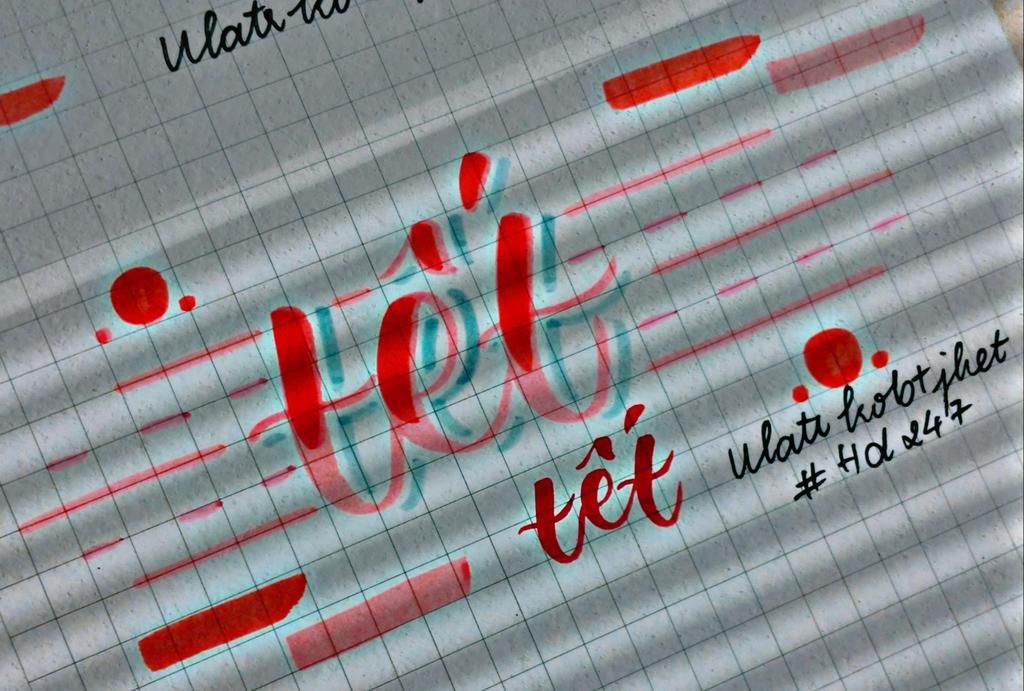 Ulatr ko
tết
tết
Ulatr kobtjhet
# Hd 247